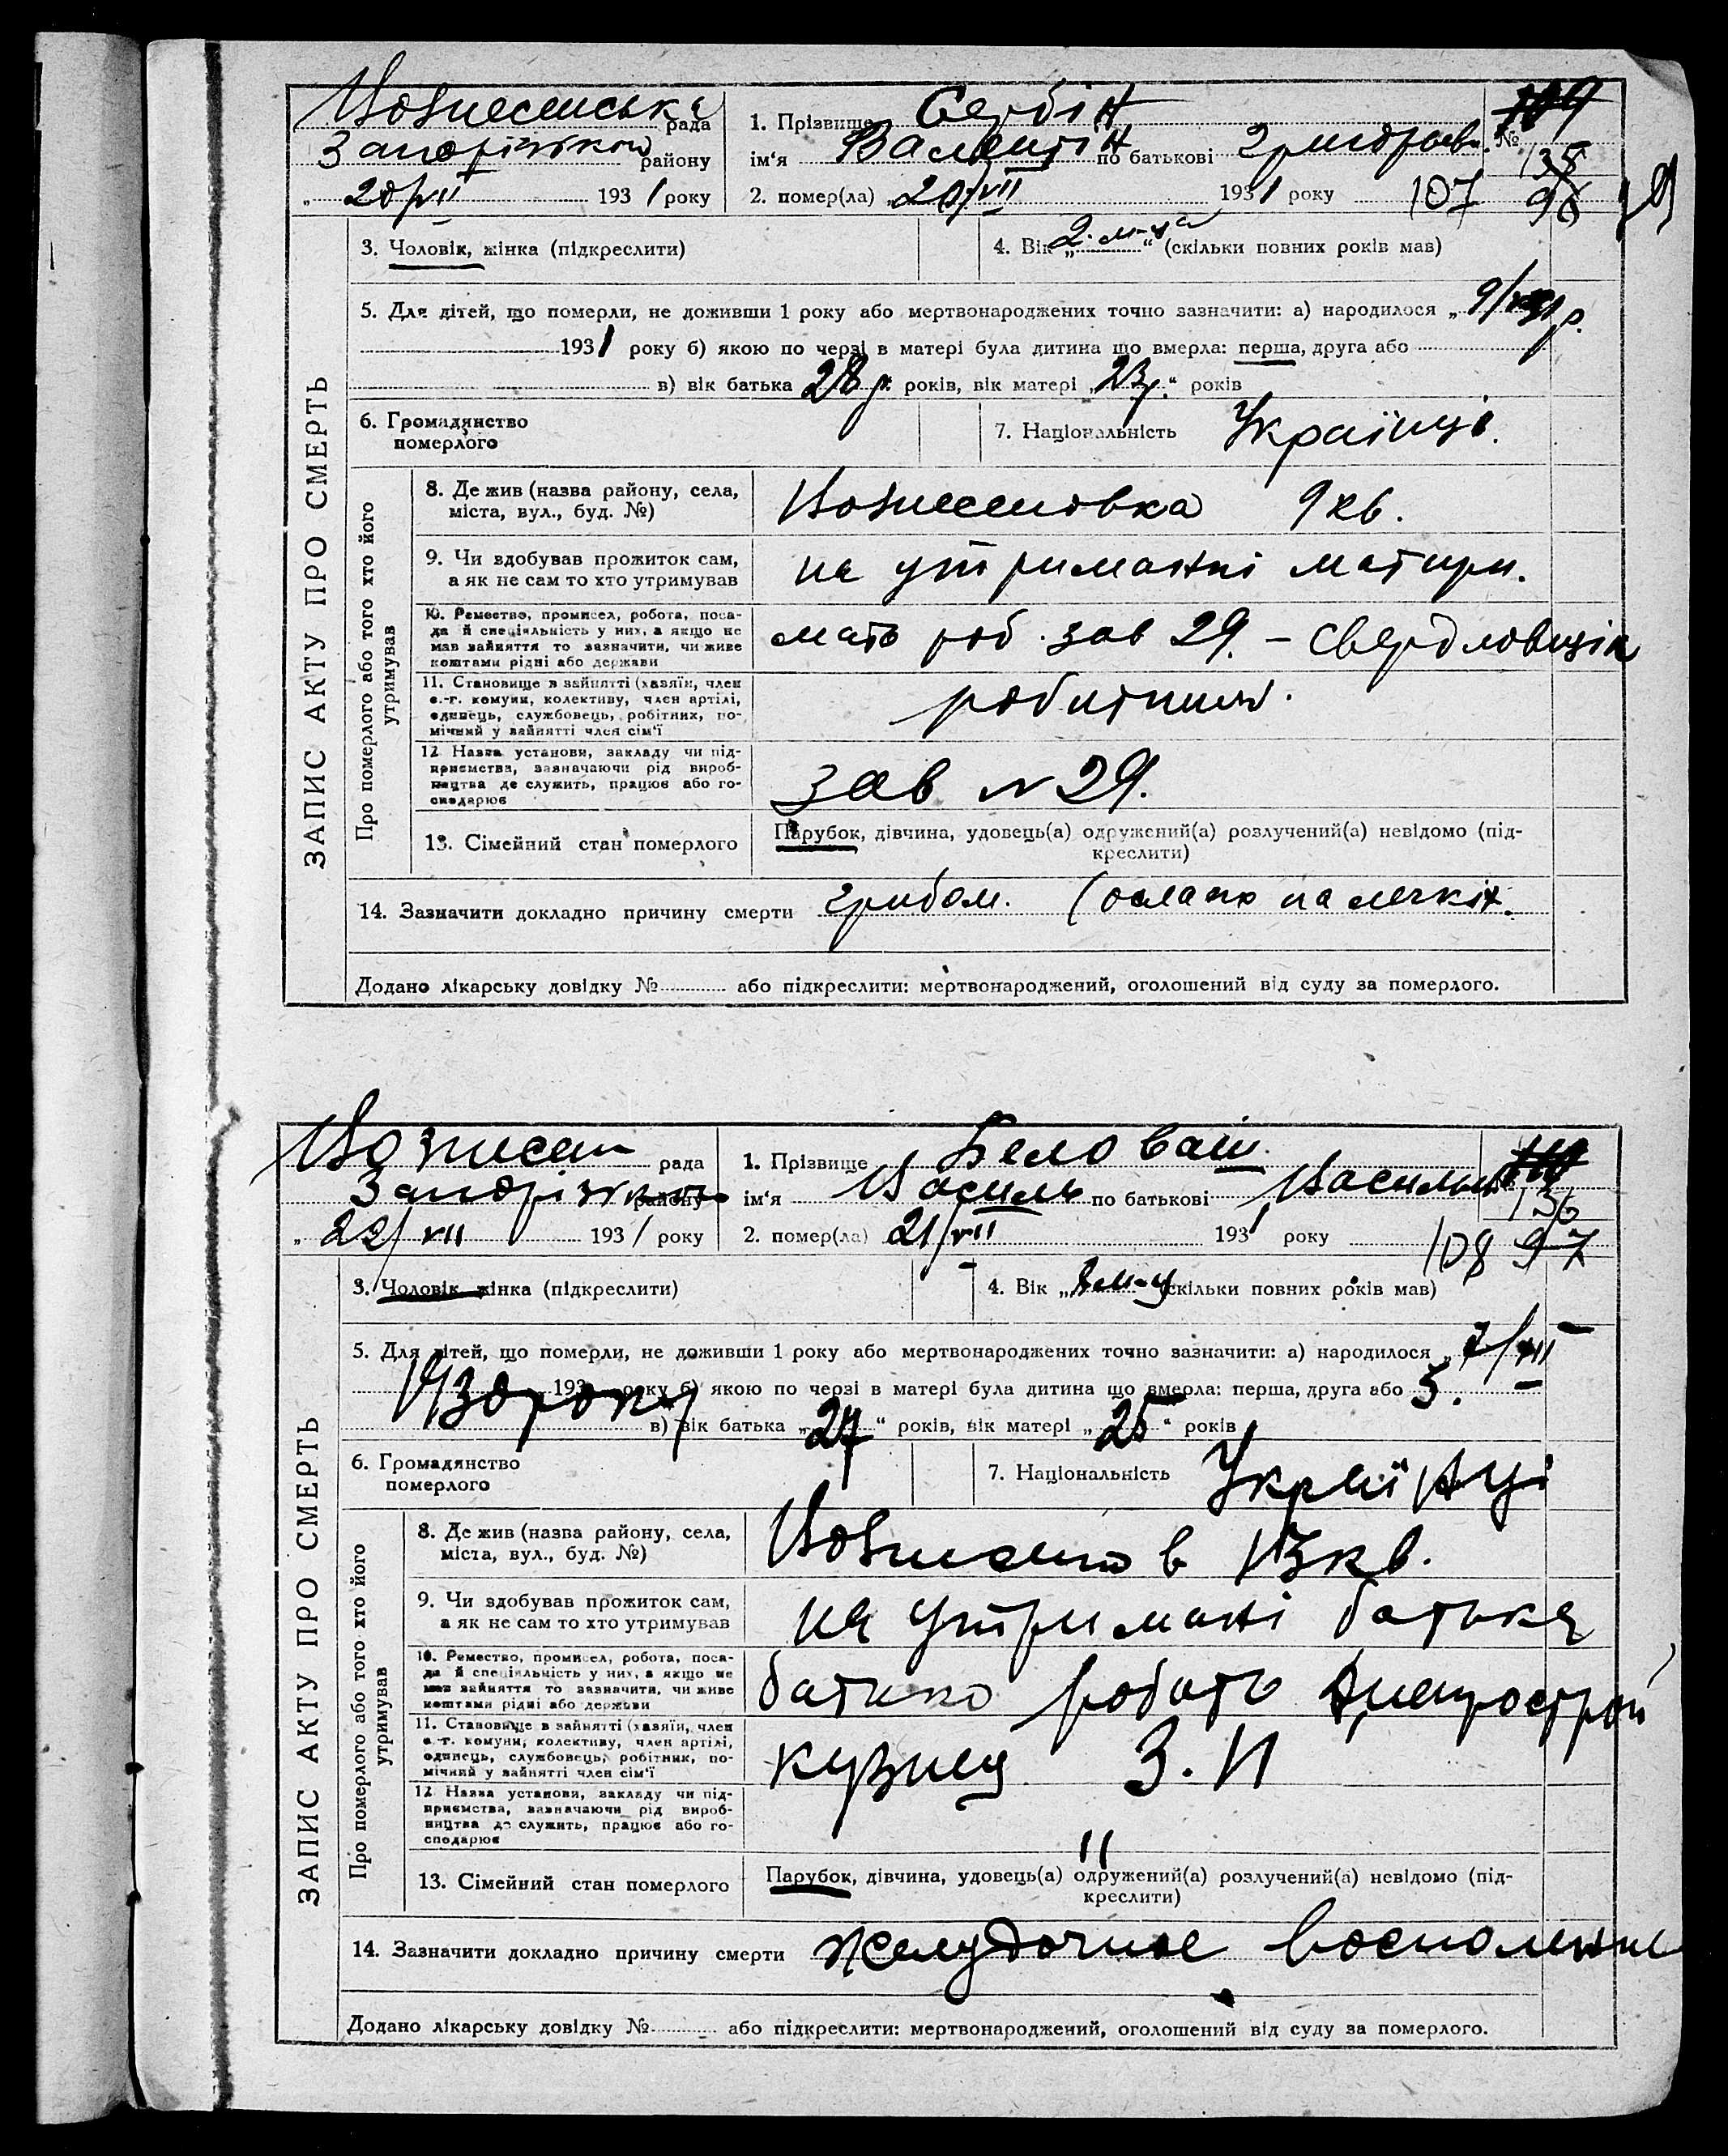 Вознесенська рада
Запорізького району
„ 20/VII 1931 року
1. Прізвище Сербін
ім'я Валентін по батькові Григорьев.
2. помер(ла) „ 20/VII 1931 року
№
135
107 96
3. Чоловік, жінка (підкреслити)
4. Вік „ 2 м-ца “ (скільки повних років мав)
5. Для дітей, що померли, не доживши 1 року або мертвонароджених точно зазначити: а) народилося „ 9/
1931 року б) якою по черзі в матері була дитина що вмерла: перша, друга або
в) вік батька 28 р. років, вік матері „ 23 “ років
6. Громадянство
померлого
7. Національність Українці.
ЗАПИС АКТУ ПРО СМЕРТЬ
Про померлого або того хто його
утримував
8. Де жив (назва району, села,
міста, вул., буд. №)
Вознесеновка 9 кв.
9. Чи здобував прожиток сам,
а як не сам то хто утримував
на утриманні матири.
10. Ремество, промисел, робота, поса-
да й спеціяльність у них, а якщо не
мав зайняття то зазначити, чи живе
коштами рідні або держави
мать роб. зав 29. – свердловщік
11. Становище в зайнятті (хазяїн, член
с.-г. комуни, колективу, член артілі,
одинець, службовець, робітник, по-
мічний у зайнятті член сім'ї
12 Назва установи, закладу чи під-
приємства, зазначаючи рід вироб-
ництва де служить, працює або го-
сподарює
зав № 29.
13. Сімейний стан померлого
Парубок, дівчина, удовець(а) одружений(а) розлучений(а) невідомо (під-
креслити)
14. Зазначити докладно причину смерти
Додано лікарську довідку № або підкреслити: мертвонароджений, оголошений від суду за померлого.
Вознесен рада
Запорізьк району
„ 22/VII 1931 року
1. Прізвище Беловаш
ім'я Василь по батькові Васильов
2. помер(ла) 21/VII 1931 року
136
108 97
3. Чоловік жінка (підкреслити)
4. Вік „ 8 м-ц (скільки повних років мав)
5. Для дітей, що померли, не доживши 1 року або мертвонароджених точно зазначити: а) народилося „ 7/XII
1930 року 193 року б) якою по черзі в матері була дитина що вмерла: перша, друга або 5.
в) вік батька „ 27 “ років, вік матері „ 25 “ років
6. Громадянство
померлого
7. Національність Українці
ЗАПИС АКТУ ПРО СМЕРТЬ
Про померлого або того хто його
утримував
8. Де жив (назва району, села,
міста, вул., буд. №)
Вознесенов 13 кв.
9. Чи здобував прожиток сам,
а як не сам то хто утримував
на утримані батька
10. Ремество, промисел, робота, поса-
да й спеціяльність у них, а якщо не
мав зайняття то зазначити, чи живе
коштами рідні або держави
батько роботь Днепрострой
11. Становище в зайнятті (хазяїн, член
с.-г. комуни, колективу, член артілі,
одинець, службовець, робітник, по-
мічний у зайнятті член сім'ї
кузнец
12 Назва установи, закладу чи під-
приємства, зазначаючи рід вироб-
ництва де служить, працює або го-
сподарює
13. Сімейний стан померлого
Парубок, дівчина, удовець(а) одружений(а) розлучений(а) невідомо (під-
креслити)
14. Зазначити докладно причину смерти желудочное восполение
Додано лікарську довідку № або підкреслити: мертвонароджений, оголошений від суду за померлого.